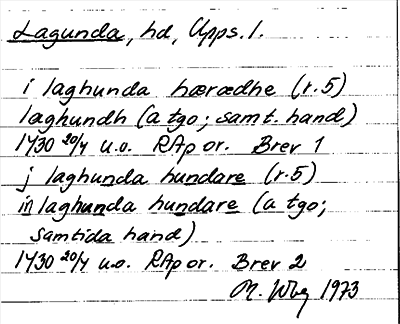 Lagunda, hd, Upps. l.
i laghunda hærædhe (r. 5)
læghundh (a tgo; samt. hand)
1430 20/4 u.o. RAp or. Brev 1
j laghunda hundare (r. 5)
in laghunda hundare (a tgo;
samtida hand)
1430 20/4 u.o. RAp or. Brev 2
M. Wbg 1973